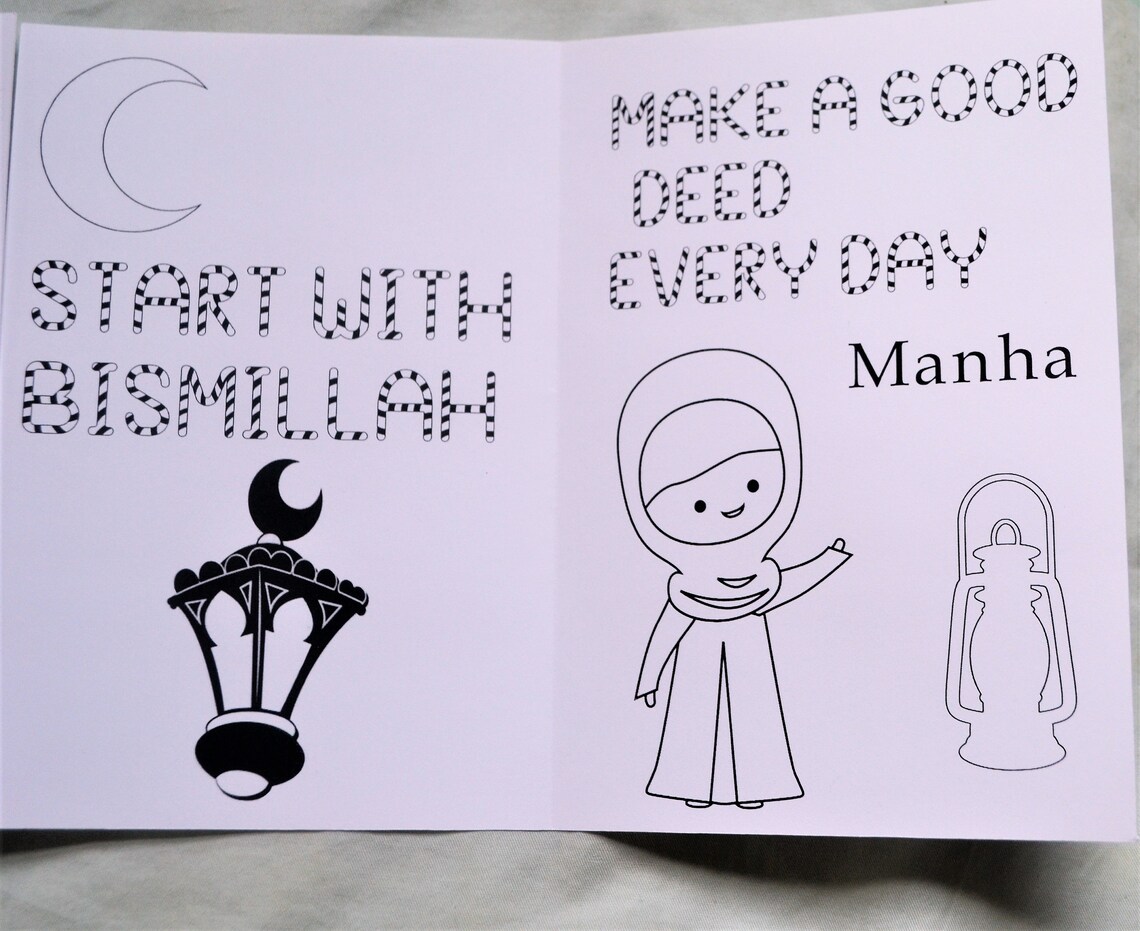 START WITH
BISMILLAH
MAKE A GOOD
DEED
EVERY DAY
Manha